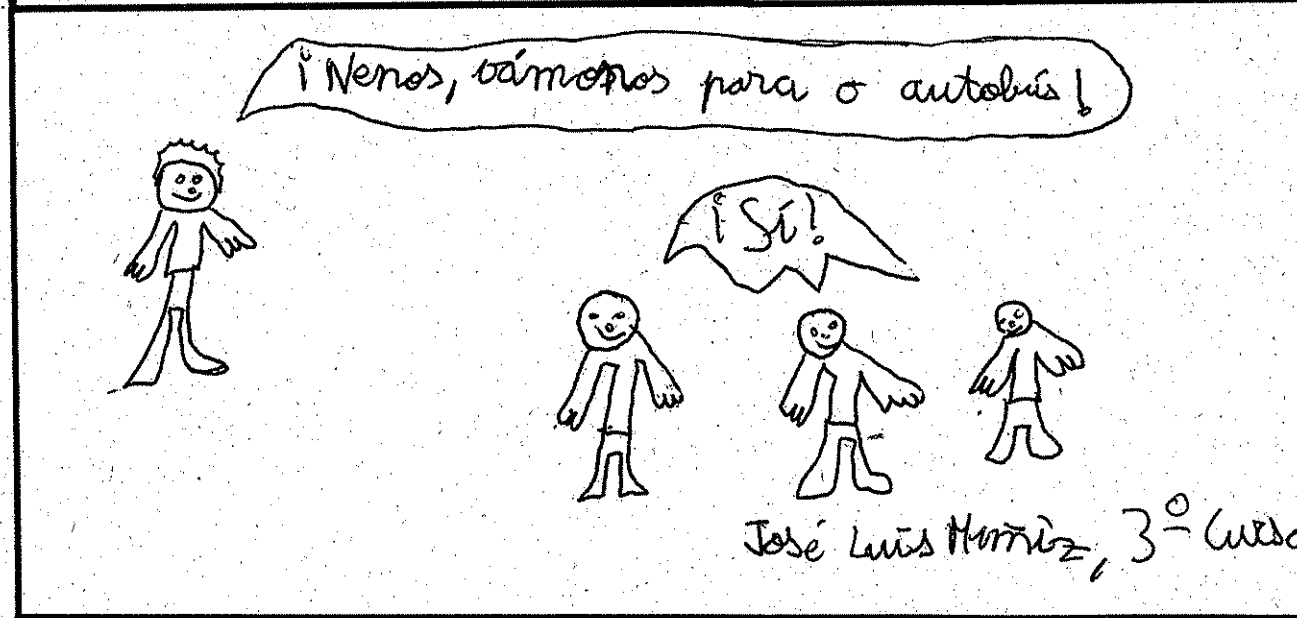 ¡Nenos, vámonos para o autobús!
¡Sí!
José Luis Muñiz, 3º Curso